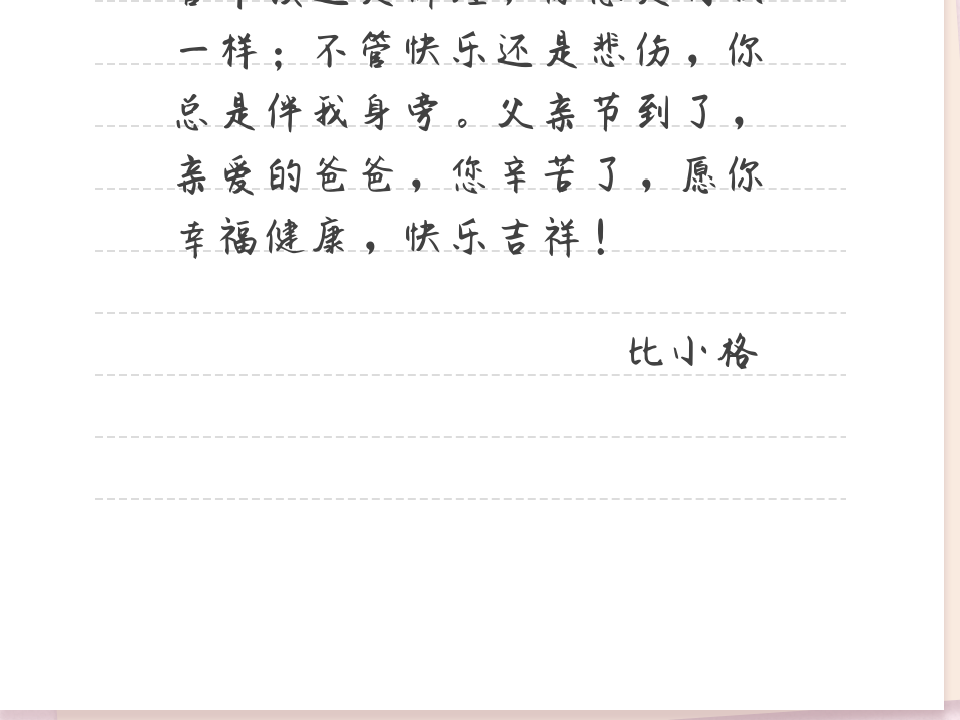 一样；不管快乐还是悲伤，你
总是伴我身旁。父亲节到了，
亲爱的爸爸，您辛苦了，愿你
幸福健康，快乐吉祥！
比小格